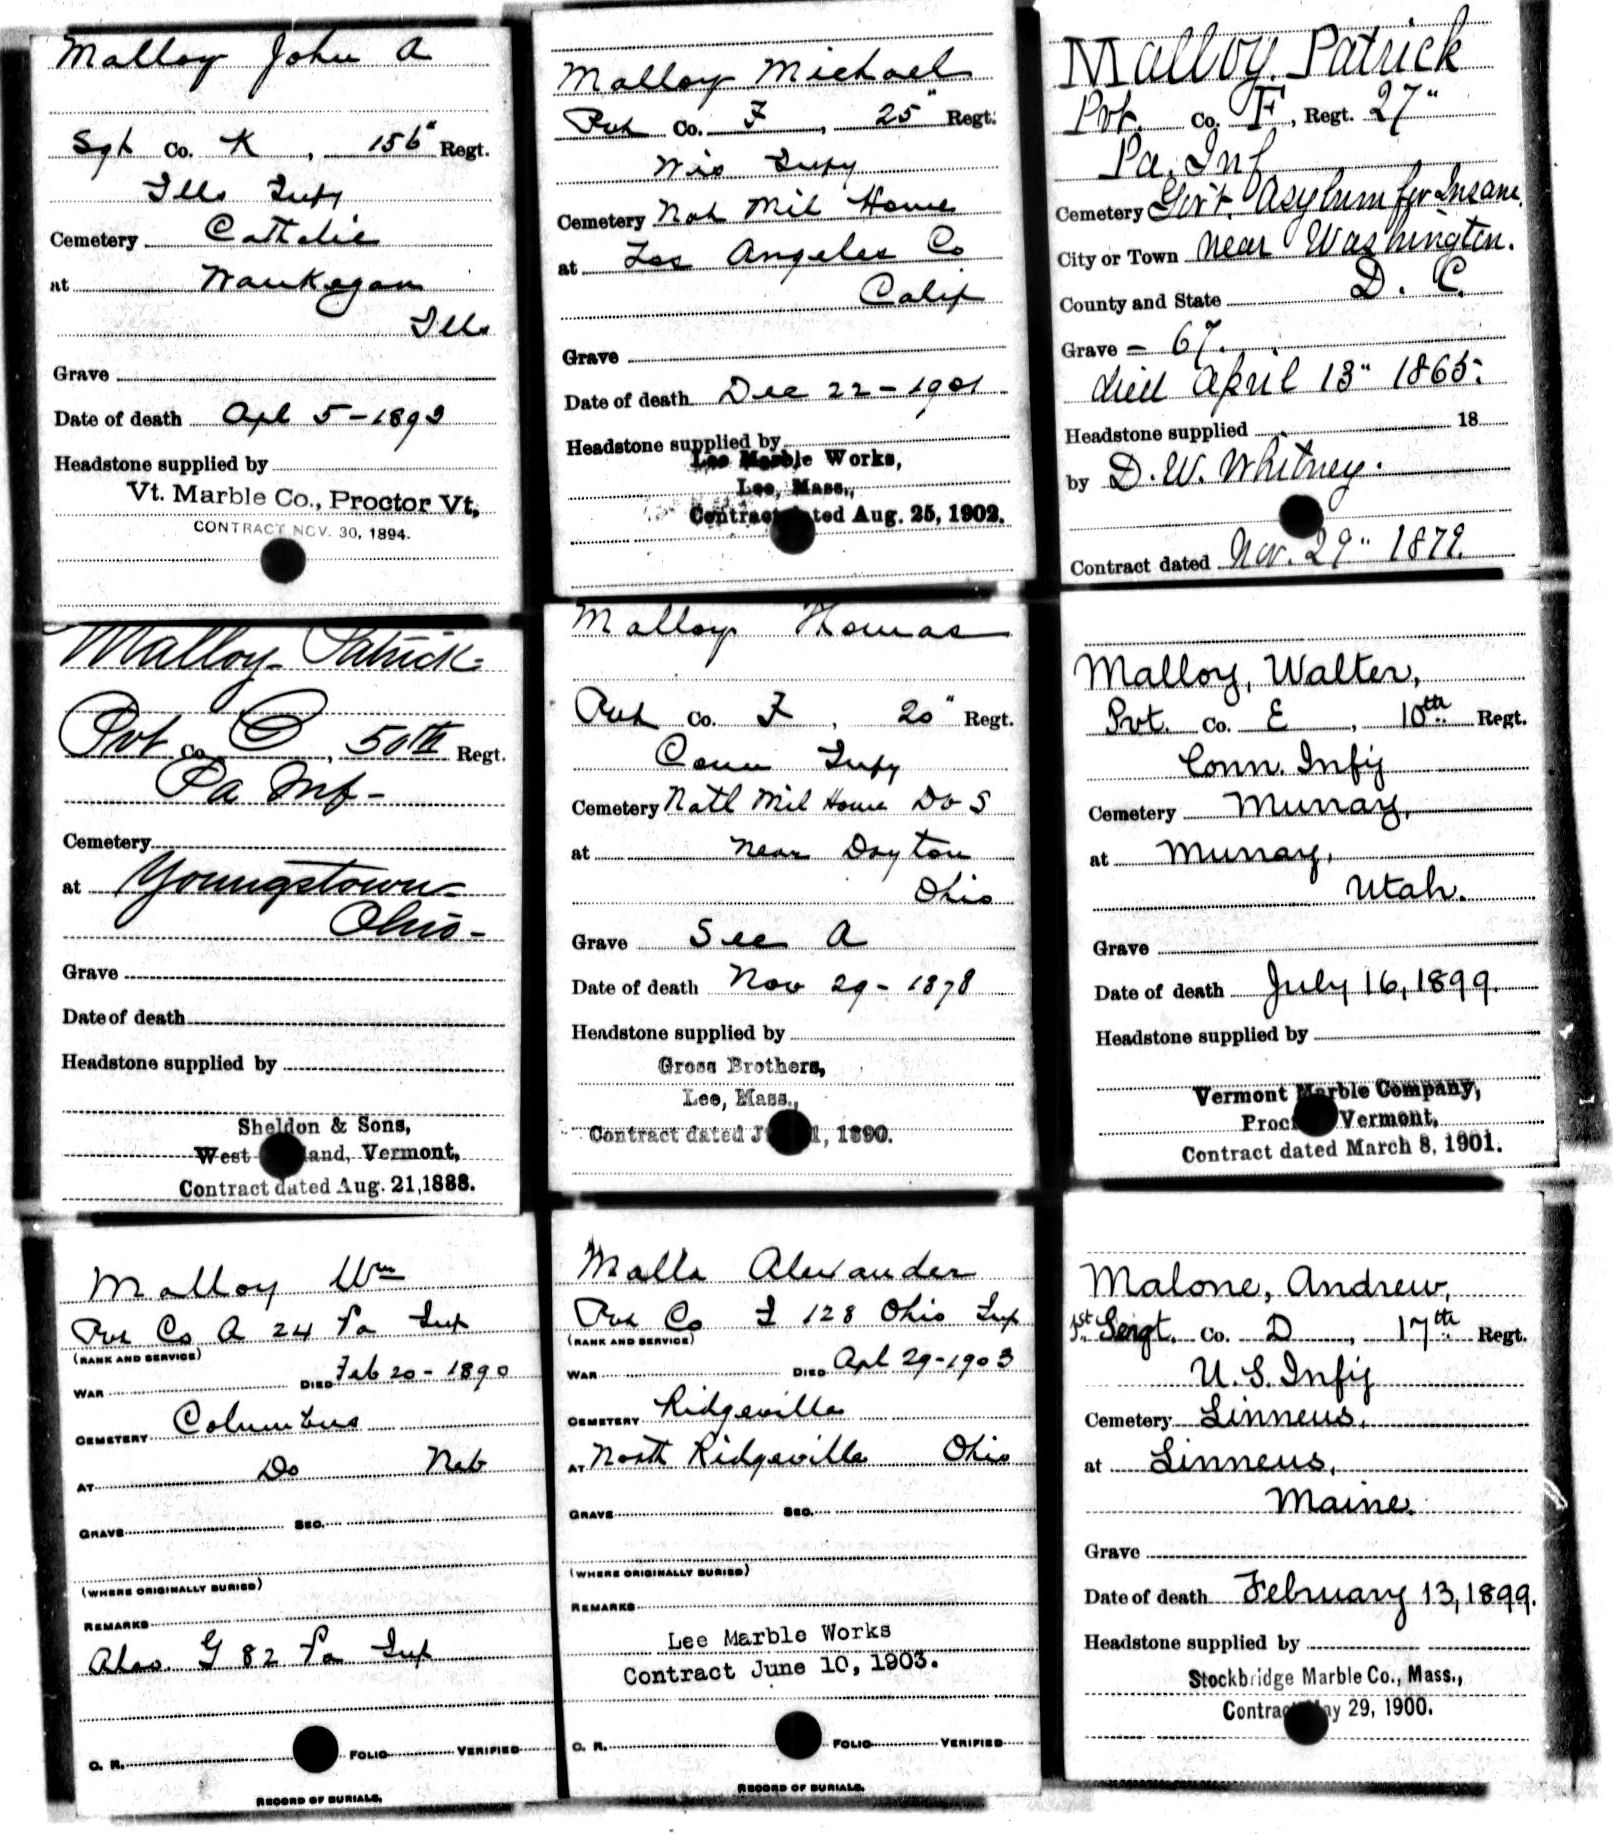 Malloy John A
Sgt Co. K, 156" Regt.
Ills Infy
Cemetery Catholic
at Waukegan
Ills
Grave
Date of death Apl 5-1893
Headstone supplied by
Vt. Marble Co., Proctor Vt,
CONTRACT NOV. 30, 1894.
Malloy Michael
Pvt Co. F, 25" Regt.
Wis Infy
Cemetery Nat Mil Home
at Los Angeles Co
Calif
Grave
Date of death Dec 22-1901
Headstone supplied by
Lee Marble Works,
Lee, Mass.,
Contract dated Aug. 25, 1902.
Malloy, Patrick
Pvt. Co. F, Regt. 27"
Pa. Inf
Cemetery Gov't. Asylum for Insane.
City or Town near Washington.
County and State D. C.
Grave = 67.
died April 13" 1865.
Headstone supplied 18
by D. W. Whitney.
Contract dated Nov. 29" 1879.
Malloy- Patrick-
Pvt Co. C, 50th Regt.
Pa Inf-
Cemetery
at Youngstown-
Ohio-
Grave
Date of death
Headstone supplied by
Sheldon & Sons,
West land, Vermont,
Contract dated Aug. 21, 1888.
Malloy Thomas
Pvt Co. F, 20" Regt.
Conn Infy
Cemetery Natl Mil Home D v S
at near Dayton
Ohio
Grave Sec A
Date of death Nov 29-1878
Headstone supplied by
Gross Brothers,
Lee, Mass.,
Contract dated 1, 1890.
Malloy, Walter,
Pvt. Co. E, 10th Regt.
Conn. Infy
Cemetery Murray,
at Murray,
Utah.
Grave
Date of death July 16, 1899.
Headstone supplied by
Vermont Marble Company,
Proc Vermont,
Contract dated March 8, 1901.
Malloy Wm
Pvt Co A 24 Pa Inf
(RANK AND SERVICE)
WAR DIED Feb 20-1890
CEMETERY Columbus
AT Do Neb
GRAVE SEC.
(WHERE ORIGINALLY BURIED)
REMARKS
Also G 82 Pa Inf
O. R. FOLIO VERIFIED
RECORD OF BURIALS.
Malls Alexander
Pvt Co I 128 Ohio Inf
(RANK AND SERVICE)
WAR DIED Apl 29-1903
CEMETERY Ridgeville
AT North Ridgeville Ohio
GRAVE SEC.
(WHERE ORIGINALLY BURIED)
REMARKS
Lee Marble Works
Contract June 10, 1903.
O. R. FOLIO VERIFIED
RECORD OF BURIALS.
Malone, Andrew,
1st Sergt. Co. D, 17th Regt.
U. S. Infy
Cemetery Linneus,
at Linneus,
Maine.
Grave
Date of death February 13, 1899.
Headstone supplied by
Stockbridge Marble Co., Mass.,
Contract May 29, 1900.